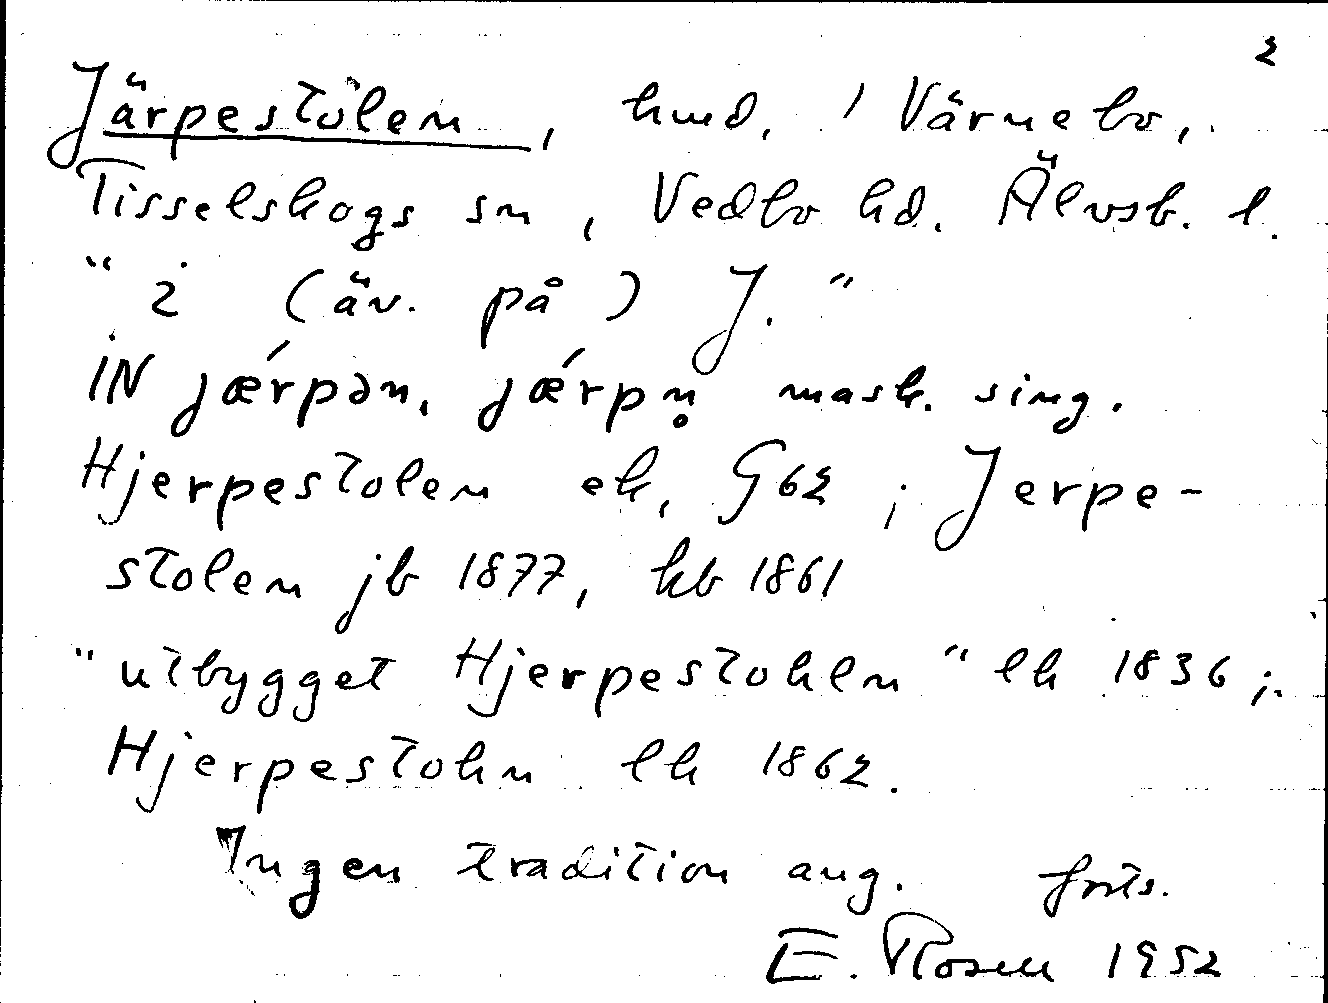 2
Järpestolen, hmd. / Värnebo,
Tisselskogs sn, Vedbo hd. Älvsb. l.
"i (äv. på) J."
IN jǽrpən, jǽrpn̥ mask. sing.
Hjerpestolen ek, G62; Jerpe-
stolen jb 1877, kb 1861
"utbygget Hjerpestohln" lh 1836;
Hjerpestohn lh 1862.
Ingen tradition ang. forts.
E. Rosell 1952